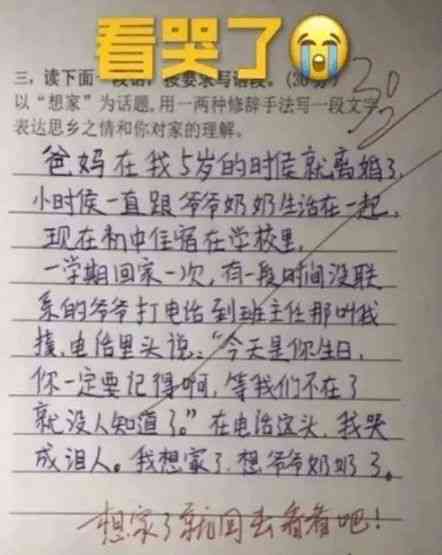 看哭了😭
三，读下面一段话，按要求写语段。（30分）
以“想家”为话题，用一两种修辞手法写一段文字
表达思乡之情和你对家的理解。
30
爸妈在我5岁的时侯就离婚了，
小时侯一直跟爷爷奶奶生活在一起，
现在初中住宿在学校里，
一学期回家一次，有一段时间没联
系的爷爷打电话到班主任那叫我
接，电话里头说：“今天是你生日，
你一定要记得啊，等我们不在了
就没人知道了。”在电话这头，我哭
成泪人。我想家了，想爷爷奶奶了。
想家了就回去看看吧！